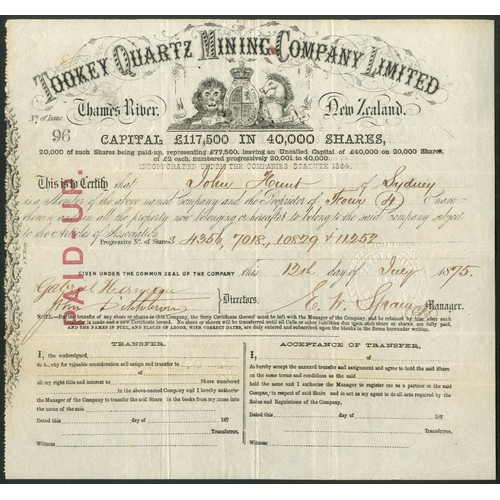 TOOKEY QUARTZ MINING COMPANY LIMITED
Thames River, New Zealand.
No. of Issue
96
CAPITAL £117,500 IN 40,000 SHARES,
20,000 of such Shares being paid-up, representing £77,500, leaving an Uncalled Capital of £40,000 on 20,000 Shares,
of £2 each, numbered progressively 20,001 to 40,000.
INCORPORATED UNDER THE COMPANIES STATUTE 1864.
This is to Certify that John Hunt of Sydney
is a Member of the above named Company and the Proprietor of Four (4) Shares
therein and in all the property now belonging or hereafter to belong to the said company subject
to the Articles of Association
Progressive No. of Shares 4356, 7018, 10829 & 11252
PAID UP.
GIVEN UNDER THE COMMON SEAL OF THE COMPANY this 12th day of July 1875.
Directors. Manager.
NOTE.—For Transfer of Shares in this Company, the Scrip Certificate thereof must be left with the Manager of the Company, and be retained by him after such
and a new Certificate issued. No Shares so transferred until all Calls or other Liabilities due upon such share or shares are fully paid,
AND THE NAMES IN FULL, AND PLACES OF ABODE, WITH CORRECT DATES, are duly entered and subscribed upon the blanks in the Forms hereunder written.
TRANSFER.
I, the undersigned,
do hereby for valuable consideration sell assign and transfer to
all my right title and interest to Share numbered
in the above-named Company and I hereby authorise
the Manager of the Company to transfer the said Share in the books from my name into
the name of the said
Dated this day of 187
Transferror.
Witness
ACCEPTANCE OF TRANSFER.
I,
do hereby accept the annexed transfer and assignment and agree to hold the said Share
on the same terms and conditions as the said
held the same and I authorise the Manager to register me as a partner in the said
Company, in respect of said Share and to act as my agent to do all acts required by the
Rules and Regulations of the Company.
Dated this day of 187
Transferree.
Witness